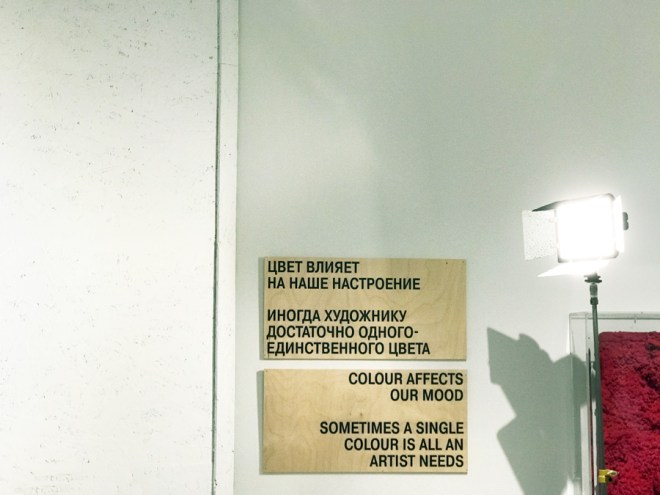 ЦВЕТ ВЛИЯЕТ
НА НАШЕ НАСТРОЕНИЕ
ИНОГДА ХУДОЖНИКУ
ДОСТАТОЧНО ОДНОГО-
ЕДИНСТВЕННОГО ЦВЕТА
COLOUR AFFECTS
OUR MOOD
SOMETIMES A SINGLE
COLOUR IS ALL AN
ARTIST NEEDS